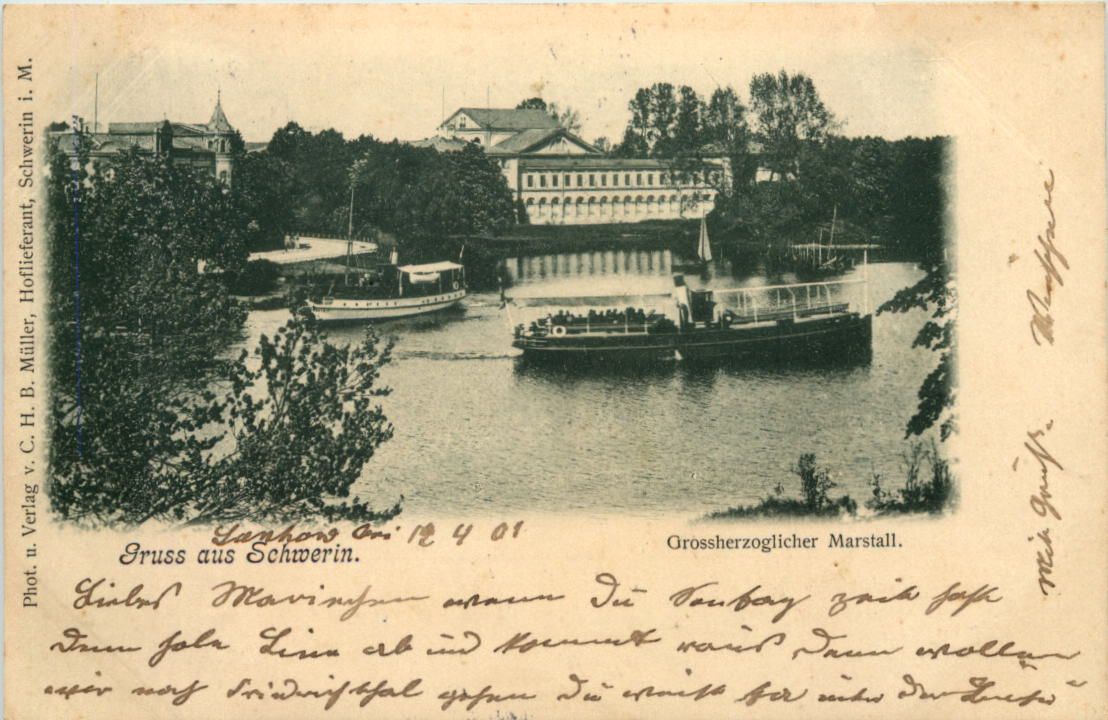 Phot. u. Verlag v. C. H. B. Müller, Hoflieferant, Schwerin i. M.
Lankow 12 4 01
Gruss aus Schwerin.
Grossherzoglicher Marstall.
Liebes Mariechen wenn Du Sontag zeit hast
Denn hole Line ab und kommt raus Denn wollen
wir nach Friedrichthal gehen Du weist
Mit Gruß